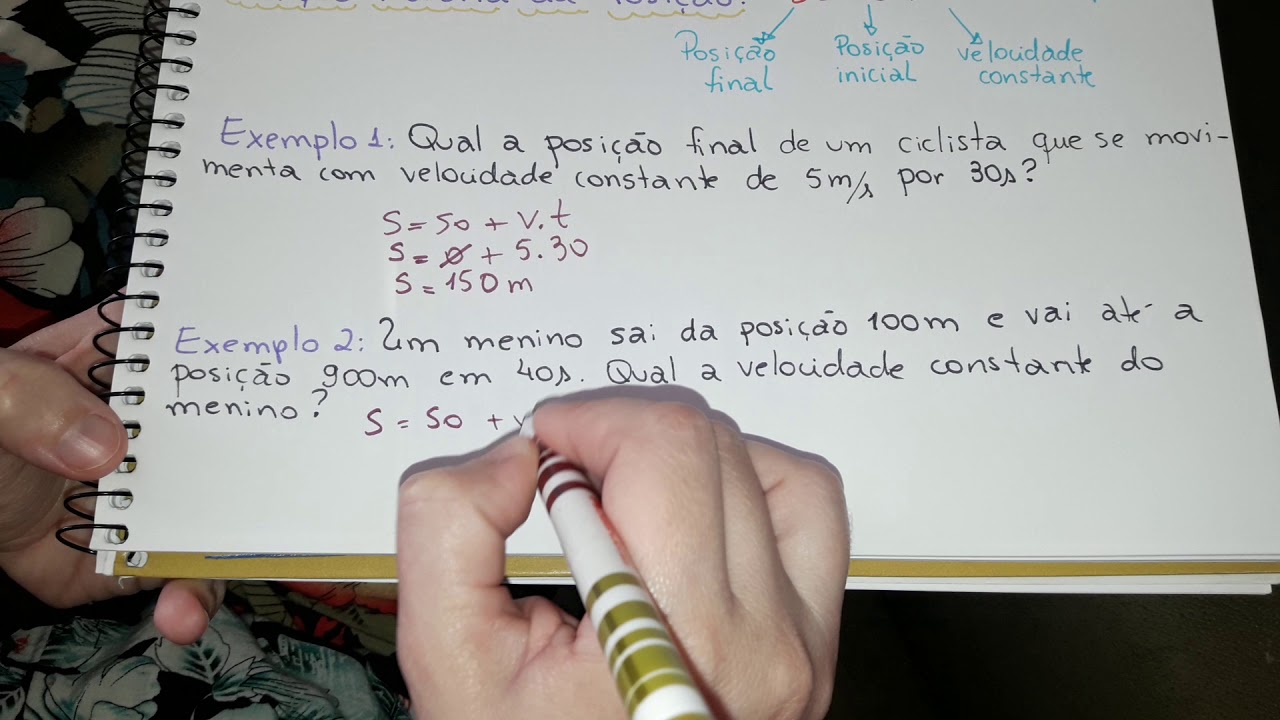 da Posição:
Posição final
Posição inicial
velocidade constante
Exemplo 1: Qual a posição final de um ciclista que se movi-
menta com velocidade constante de 5m/s por 30s?
S = So + V.t
S = 0 + 5.30
S = 150m
Exemplo 2: Um menino sai da posição 100m e vai até a
posição 900m em 40s. Qual a velocidade constante do
menino? S = So + v